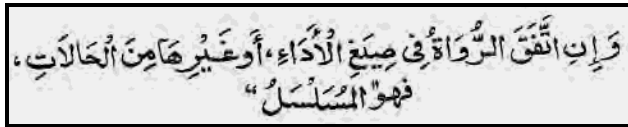 وَإِنِ اتَّفَقَ الرُّوَاةُ فِى صِيَغِ الْأَدَاءِ، أَوغَيْرِهَا مِنَ الْحَالَاتِ،
فهو "المُسَلْسَلُ"